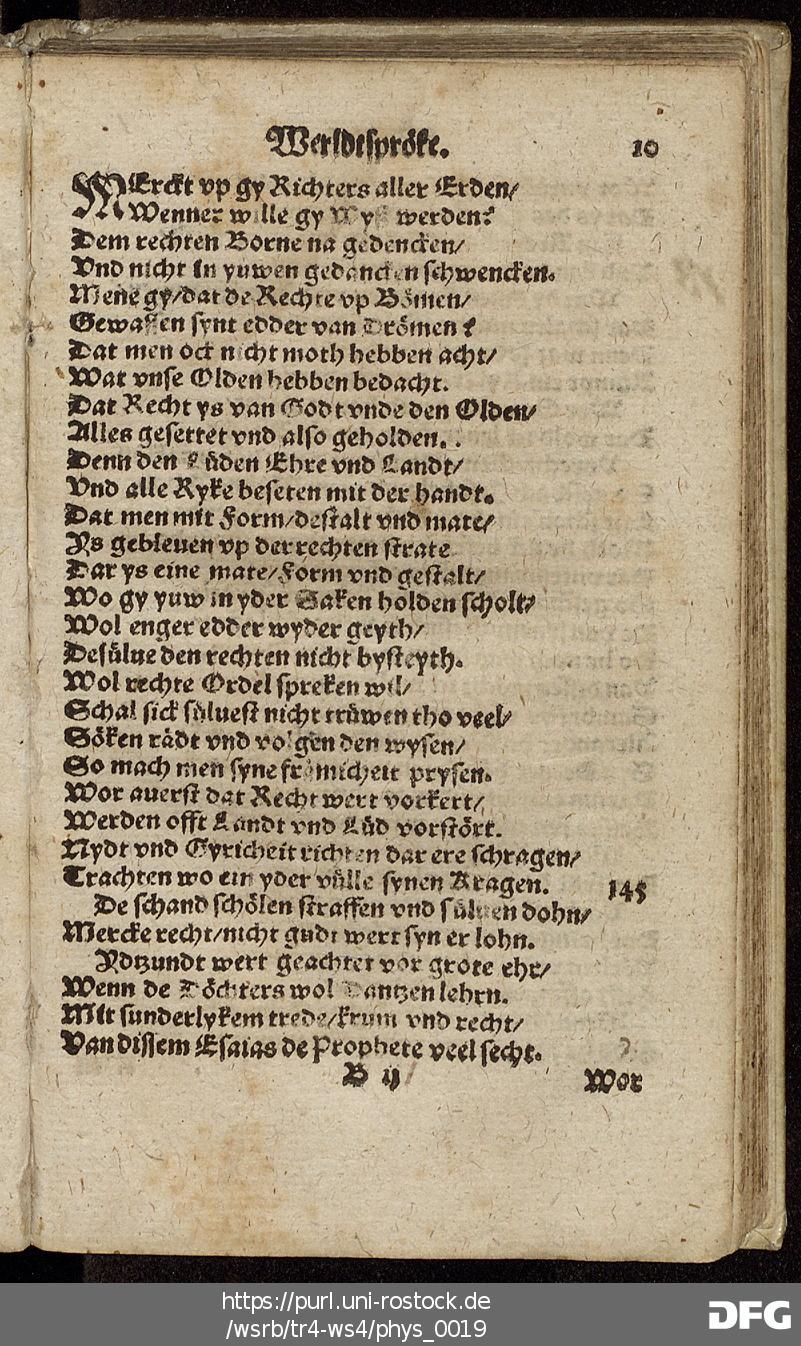 Werldtspröke. 10
MErckt vp gy Richters aller Erden/
Wenner wille gy Wyß werden?
Dem rechten Borne na gedencken/
Vnd nicht in yuwen gedancken schwencken.
Mene gy/dat de Rechte vp Bömen/
Gewassen synt edder van Drömen?
Dat men ock nicht moth hebben acht/
Wat vnse Olden hebben bedacht.
Dat Recht ys van Godt vnde den Olden/
Alles gesettet vnd also geholden.
Denn den Lüden Ehre vnd Landt/
Vnd alle Ryke beseten mit der handt.
Dat men mit Form/destalt vnd mate/
Ys gebleuen vp der rechten strate
Dar ys eine mate/Form vnd gestalt/
Wo gy yuw in yder Saken holden scholt/
Wol enger edder wyder geyth/
Desülue den rechten nicht bysteyth.
Wol rechte Ordel spreken wil/
Schal sick süluest nicht trüwen tho veel/
Söken rädt vnd volgen den wysen/
So mach men syne frömicheit prysen.
Wor auerst dat Recht wert vorkert/
Werden offt Landt vnd Lüd vorstört.
Nydt vnd Gyricheit richten dar ere schragen/
Trachten wo ein yder vülle synen Kragen. 145
De schand schölen straffen vnd süluen dohn/
Mercke recht/nicht gudt wert syn er lohn.
Ydtzundt wert geachtet vor grote ehr/
Wenn de Döchters wol Dantzen lehrn.
Mit sunderlykem trede/krum vnd recht/
Van dissem Esaias de Prophete veel secht.
B ij
Wor
https://purl.uni-rostock.de
/wsrb/tr4-ws4/phys_0019
DFG